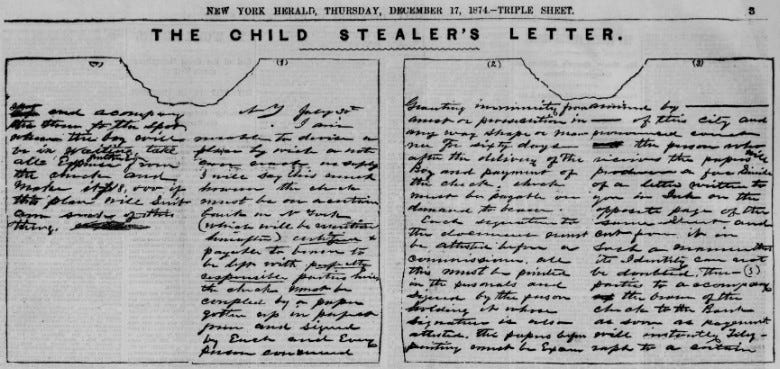 NEW YORK HERALD, THURSDAY, DECEMBER 17, 1874.—TRIPLE SHEET.
3
THE CHILD STEALER'S LETTER.
and acompany
the to the spot
where the boy will
be in waiting take
all Expense from
the check and
make it $18,000 if
this plan will suit
am sure of
thing.
(1)
N Y July
I am
unable to devise a
plan by wich a
I will say this much
however the check
must be on a certain
bank in N York
(which will be mention
hereafter) &
payable to bearer to
be left with perfectly
responsible parties
the check must be
coupled by a paper
gotten up in proper
form and signed
by Each and Every
person concerned
(2)
Granting immunity from
arrest or prosecution in
any way shape or man
ner for sixty days
after the delivery of the
Boy and payment of
the check. check
must be payable on
demand to bearer.
Each signature to
the document must
be attested before a
commissioner. all
this must be printed
in the personals and
signed by the person
holding it whose
signature is also
attested. the papers before
printing must be Exam
(3)
amined by
of this city and
pronounced correct
the person who
receives the papers will
produce a
of a letter written to
you in Ink on the
opposite page of the
same sheet and
cut from it in
such a manner that
its Identity can not
be doubted, three (3)
parties to acompany
the bearer of the
check to the Bank
as soon as payment
will instantly Teleg-
raph to a certain